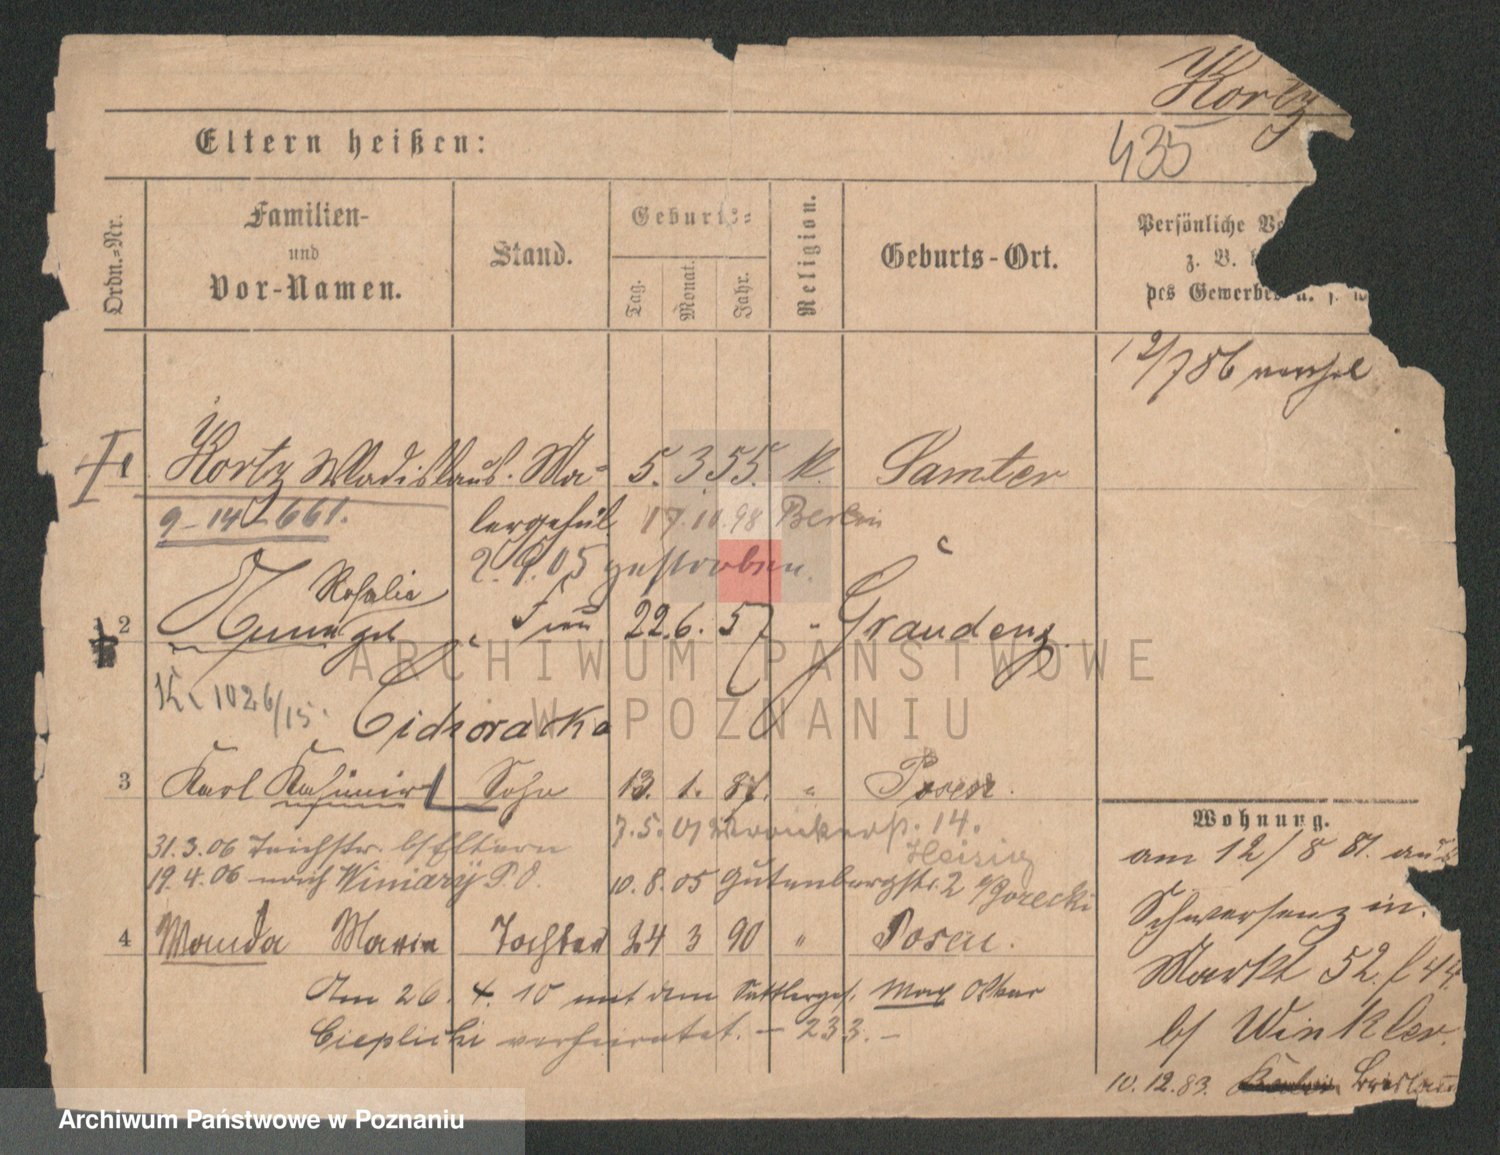 Kortz
435
Eltern heißen:
Ordn.-Nr.
Familien-
und
Vor-Namen.
Stand.
Geburts-
Tag.
Monat.
Jahr.
Religion.
Geburts-Ort.
Persönliche Ve
z. B.
des Gewerbes u. s. w
12/7 86
1 Kortz Wladislaus. Ma- 5. 3. 55. k. Samter
9-14-661. lergehül 17.10.98 Berlin
2.9.05 gestorben.
Rosalie
2 Anna geb. Frau 22. 6. 57 " Graudenz.
K. 1026/15.
Cidzoracka
3 Karl Kasimir Sohn 13. 1. 87. " Posen.
7.5.07 Wronkerst. 14.
Heisig
31.3.06 Teichstr. b/ Eltern
19.4.06 nach Winiary P.O. 10.8.05 Gutenbergstr. 2 b/ Gorecki
4 Wanda Maria Tochter 24 3 90 " Posen.
Am 26. 4. 10 mit dem Sattlerges. Max Oskar
Cieplicki verheiratet. – 233. –
Wohnung.
am 12/8 81. aus
Schwersenz in.
Markt 52. / 44
b/ Winkler.
10.12.83. Breslau
ARCHIWUM PAŃSTWOWE
W POZNANIU
Archiwum Państwowe w Poznaniu